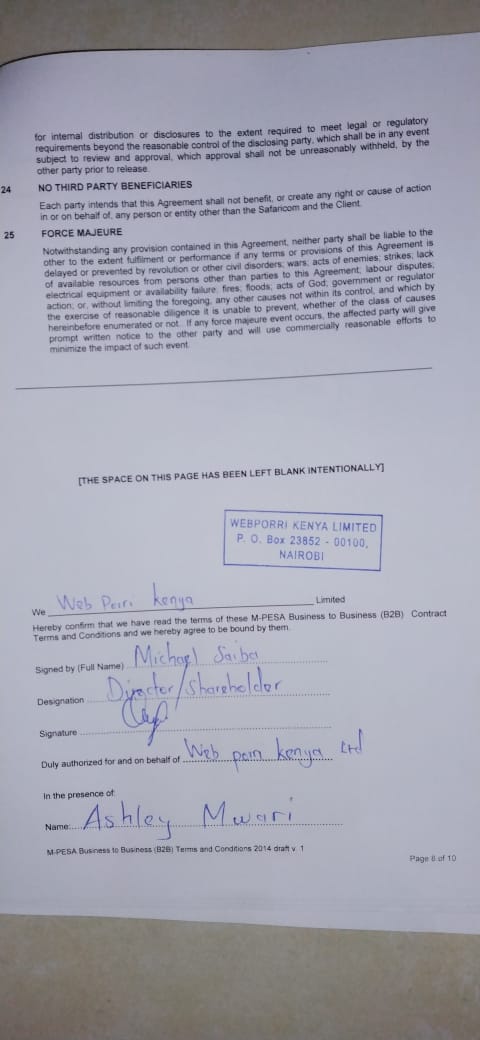 for internal distribution or disclosures to the extent required to meet legal or regulatory
requirements beyond the reasonable control of the disclosing party, which shall be in any event
subject to review and approval, which approval shall not be unreasonably withheld, by the
other party prior to release.
24 NO THIRD PARTY BENEFICIARIES
Each party intends that this Agreement shall not benefit, or create any right or cause of action
in or on behalf of, any person or entity other than the Safaricom and the Client.
25 FORCE MAJEURE
Notwithstanding any provision contained in this Agreement, neither party shall be liable to the
other to the extent fulfilment or performance if any terms or provisions of this Agreement is
delayed or prevented by revolution or other civil disorders; wars; acts of enemies; strikes; lack
of available resources from persons other than parties to this Agreement; labour disputes;
electrical equipment or availability failure; fires; floods; acts of God; government or regulator
action; or, without limiting the foregoing, any other causes not within its control, and which by
the exercise of reasonable diligence it is unable to prevent, whether of the class of causes
hereinbefore enumerated or not. If any force majeure event occurs, the affected party will give
prompt written notice to the other party and will use commercially reasonable efforts to
minimize the impact of such event.
[THE SPACE ON THIS PAGE HAS BEEN LEFT BLANK INTENTIONALLY]
WEBPORRI KENYA LIMITED
P. O. Box 23852 - 00100,
NAIROBI
We Web Porri Kenya Limited
Hereby confirm that we have read the terms of these M-PESA Business to Business (B2B) Contract
Terms and Conditions and we hereby agree to be bound by them.
Signed by (Full Name) Michael Saiba
Designation Director/Shareholder
Signature
Duly authorized for and on behalf of Web porri kenya Ltd
In the presence of:
Name: Ashley Mwari
M-PESA Business to Business (B2B) Terms and Conditions 2014 draft v. 1
Page 8 of 10